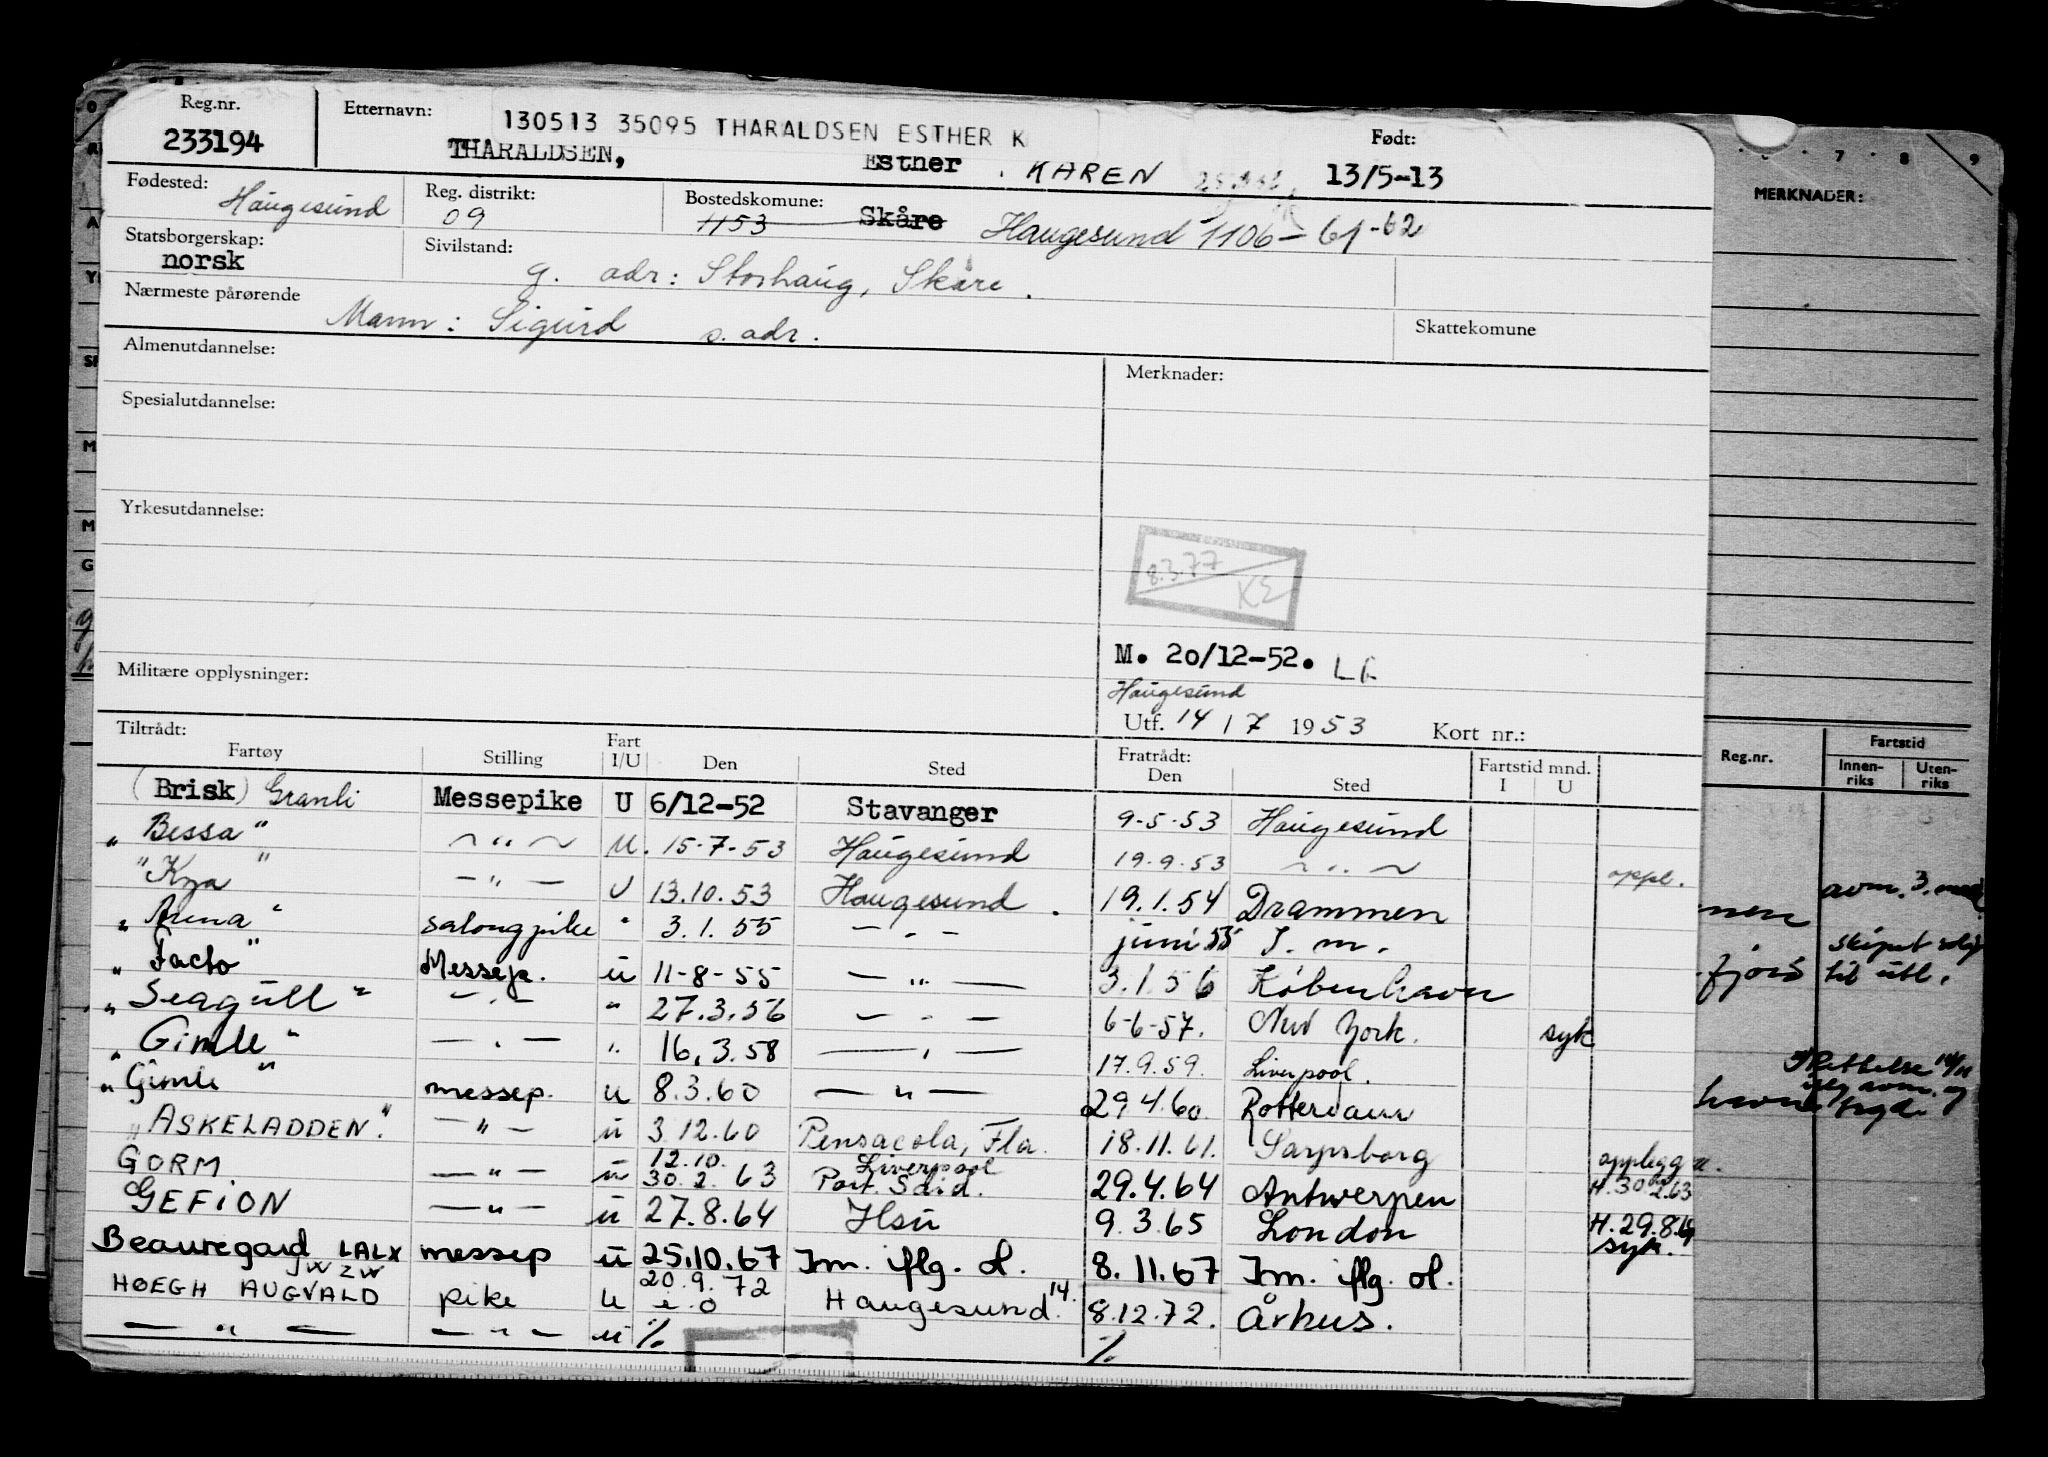 Reg.nr. Etternavn: 130513 35095 THARALDSEN ESTHER K Født:
233194 THARALDSEN, Esther KAREN 13/5-13
Fødested: Haugesund Reg. distrikt: 09 Bostedskomune: 1153 Skåre Haugesund 1106 - 61-62
Statsborgerskap: norsk Sivilstand: g. adr: Storhaug, Skåre.
Nærmeste pårørende Mann: Sigurd s. adr. Skattekomune
Almenutdannelse: Merknader:
Spesialutdannelse:
Yrkesutdannelse:
8.3.77 KE
M. 20/12-52.
Militære opplysninger: Haugesund
Utf. 14 / 7 1953 Kort nr.:
Tiltrådt: Fratrådt:
Fartøy Stilling Fart I/U Den Sted Den Sted Fartstid mnd. I U
(Brisk) Granli Messepike U 6/12-52 Stavanger 9-5-53 Haugesund
"Bessa" — " — U. 15-7-53 Haugesund 19.9.53 — " — oppl.
"Kya" — " — U 13.10.53 Haugesund. 19.1.54 Drammen
"Anna" salongpike " 3.1.55 — " — juni 55 I. m.
"Facto" Messep. u 11-8-55 — " — 3.1.56 København
"Seagull" — " — " 27.3.56 — " — 6-6-57. New York. syk
"Gimle" — " — " 16.3.58 — " — 17.9.59. Liverpool.
"Gimle" messep. u 8.3.60 — " — 29.4.60. Rotterdam
"ASKELADDEN." — " — u 3.12.60 Pensacola, Fla. 18.11.61. Sarpsborg opplegg
12.10. Liverpool
GORM — " — u 30.2.63 Port. Said. 29.4.64 Antwerpen H.30.2.63
GEFION — " — u 27.8.64 Hsu 9.3.65 London H.29.8.64 syk.
Beauregard LALX messep u 25.10.67 Im. iflg. ol. 8.11.67 Im. iflg. ol.
JWZW
HØEGH AUGVALD pike u 20.9.72 Haugesund 14. 8.12.72. Århus.
— " — — " — u % %
7 8 9
MERKNADER:
Reg.nr. Fartstid
Innen-riks Uten-riks
avm. 3. med
skipet solgt
til utl.